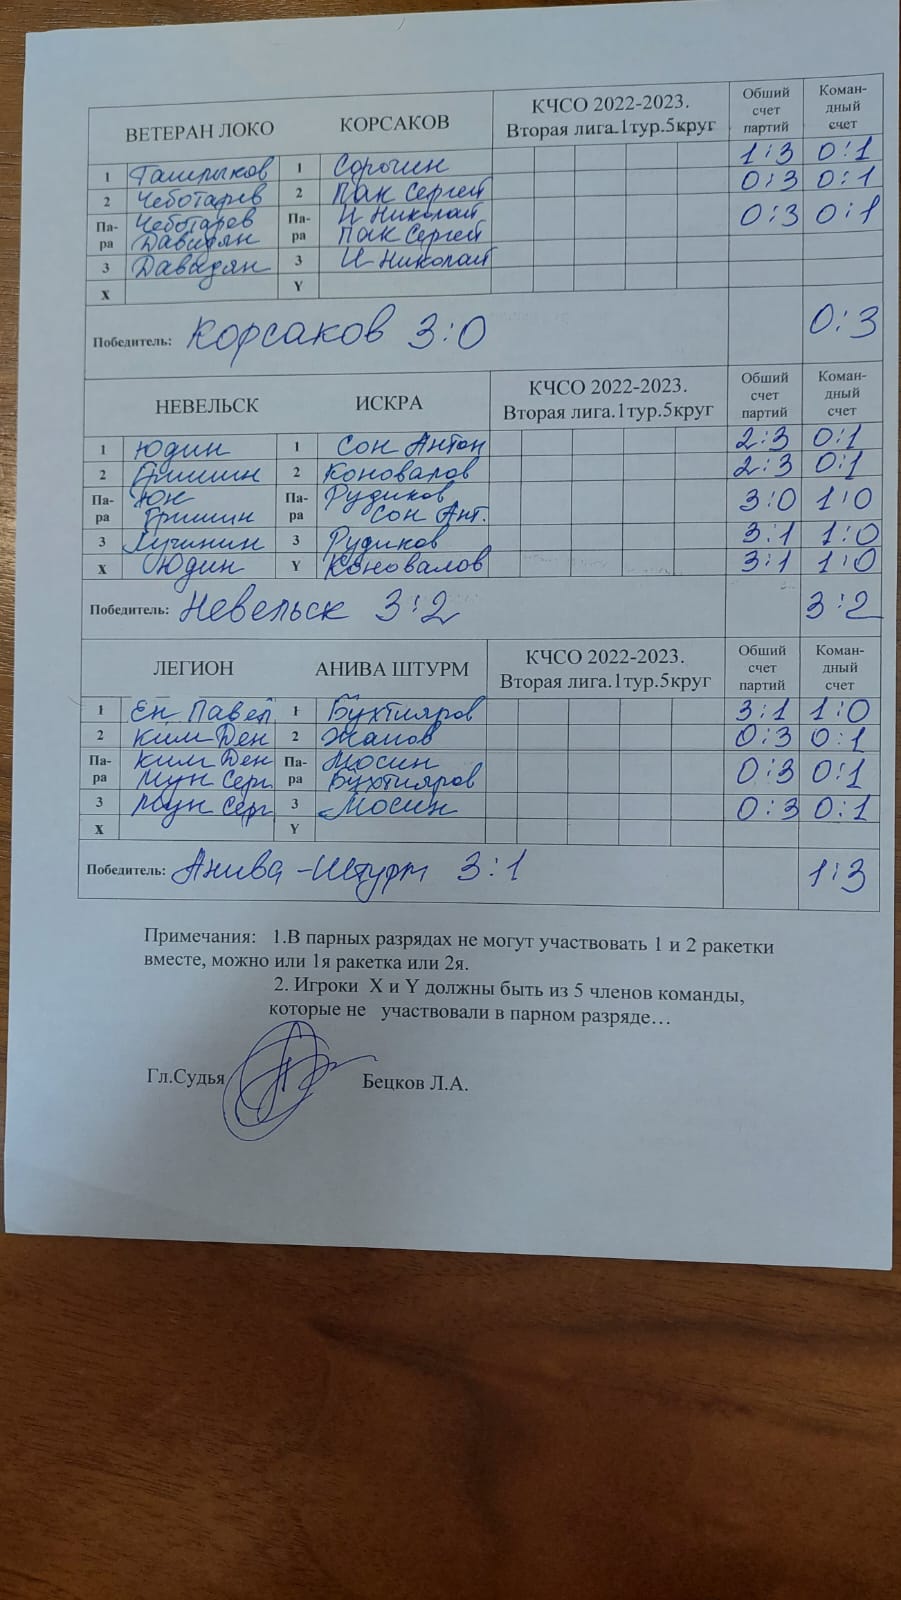 ВЕТЕРАН ЛОКО КОРСАКОВ КЧСО 2022-2023. Вторая лига.1тур.5круг Общий счет партий Коман-дный счет
1 1 Сорочин 1:3 0:1
2 Чеботарев 2 Пак Сергей 0:3 0:1
Па-ра Чеботарев Па-ра И Николай 0:3 0:1
Давидян Пак Сергей
3 Давидян 3 И Николай
X Y
Победитель: Корсаков 3:0 0:3
НЕВЕЛЬСК ИСКРА КЧСО 2022-2023. Вторая лига.1тур.5круг Общий счет партий Коман-дный счет
1 Юдин 1 Сон Антон 2:3 0:1
2 Гришин 2 Коновалов 2:3 0:1
Па-ра Юн Па-ра Рудиков 3:0 1:0
Гришин Сон Ант.
3 3 Рудиков 3:1 1:0
X Юдин Y Коновалов 3:1 1:0
Победитель: Невельск 3:2 3:2
ЛЕГИОН АНИВА ШТУРМ КЧСО 2022-2023. Вторая лига.1тур.5круг Общий счет партий Коман-дный счет
1 Ен Павел 1 Бухтияров 3:1 1:0
2 Ким Ден 2 0:3 0:1
Па-ра Ким Ден Па-ра Мосин 0:3 0:1
Мун Серг. Бухтияров
3 Мун Серг. 3 Мосин 0:3 0:1
X Y
Победитель: Анива-Штурм 3:1 1:3
Примечания: 1.В парных разрядах не могут участвовать 1 и 2 ракетки
вместе, можно или 1я ракетка или 2я.
2. Игроки X и Y должны быть из 5 членов команды,
которые не участвовали в парном разряде…
Гл.Судья Бецков Л.А.